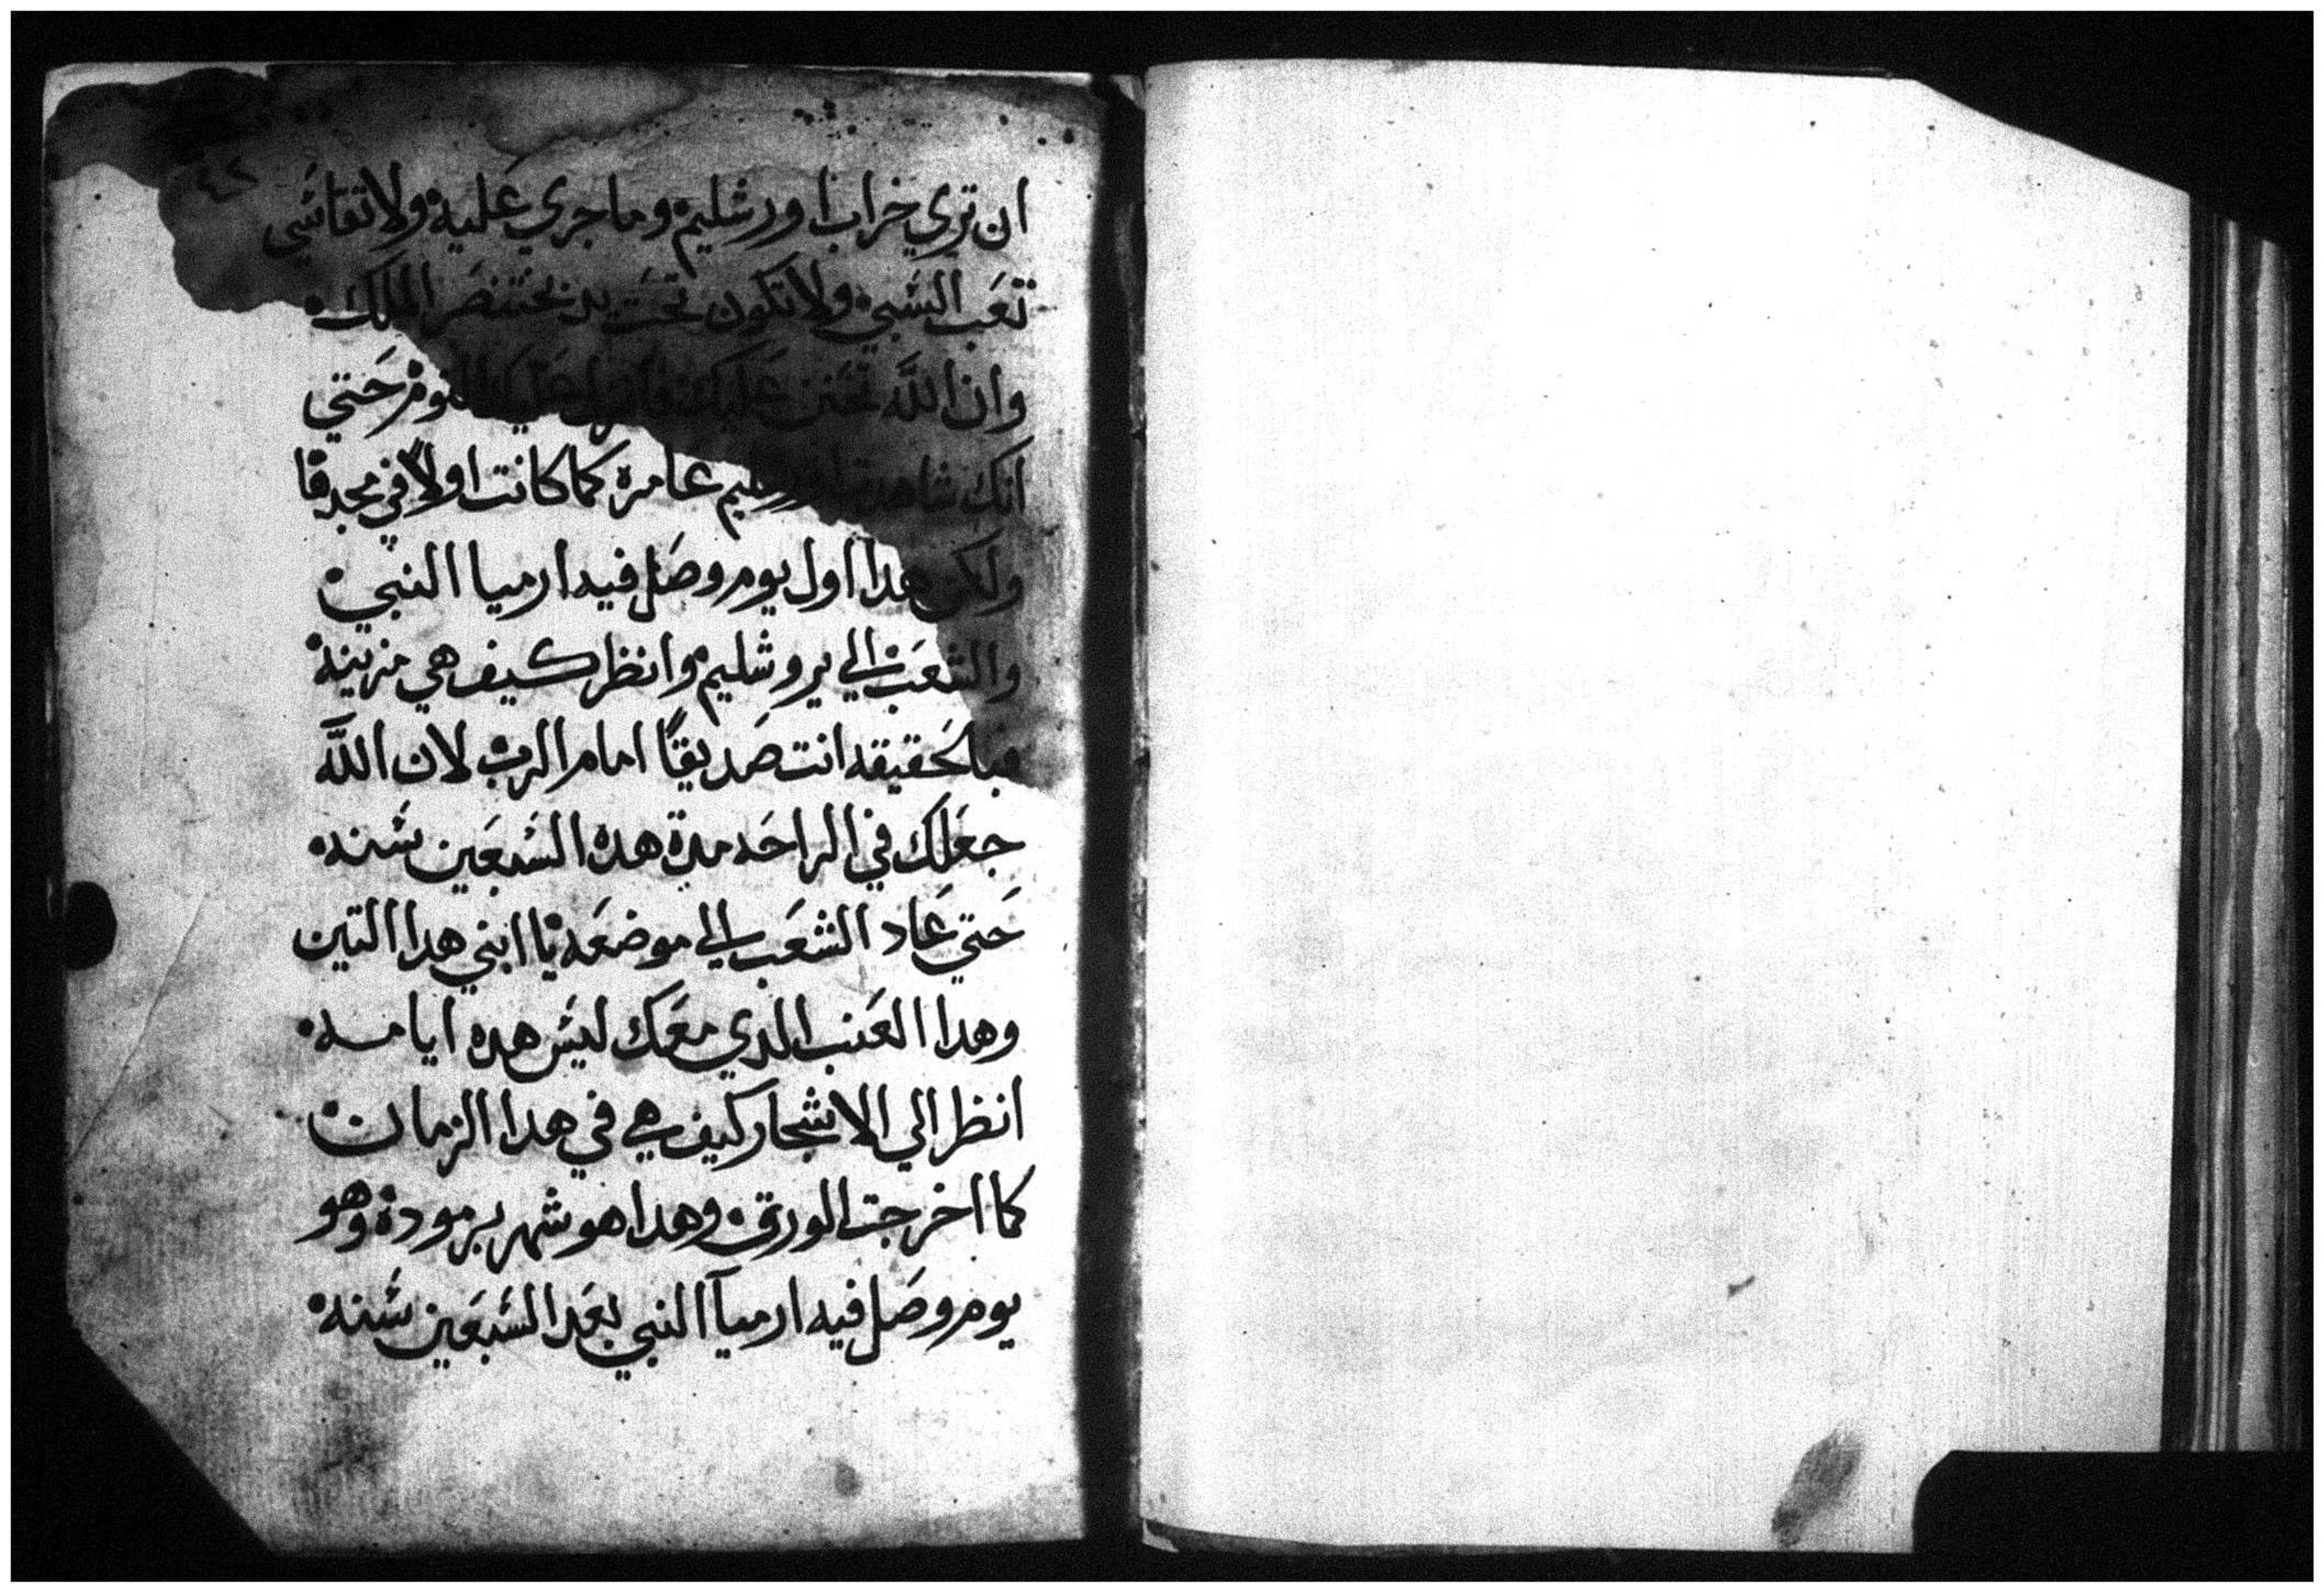 ٤٢
ان تري خراب اورشليم وما جري عليه ولا تقاسي
تعب السبي ولا تكون تحت يد بختنصر الملك
وان الله تحنن عليك حتي
انك شاهدت عامرة كما كانت اولاً في مجدها
ولكن هدا اول يوم وصل فيه ارميا النبي
والشعب الي يروشليم وانظر كيف هي مزينة
فبالحقيقه انت صديقاً امام الرب لان الله
جعلك في الراحه مدة هده السبعين سنه
حتي عاد الشعب الي موضعه يا ابني هدا التين
وهدا العنب الدي معك ليس هده ايامه
انظر الي الاشجار كيف هي في هدا الزمان
كما اخرجت الورق وهدا هو شهر برمودة وهو
يوم وصل فيه ارميآ النبي بعد السبعين سنه